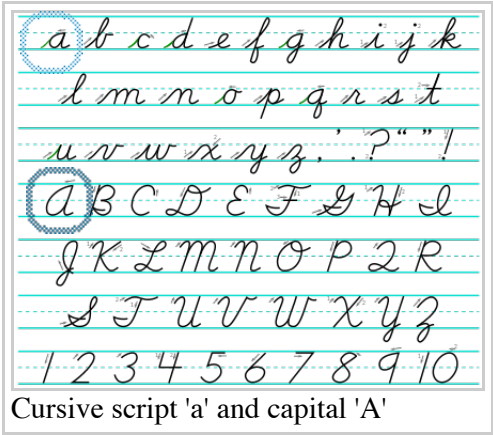 a b c d e f g h i j k
l m n o p q r s t
u v w x y z , ' . ? “ ” !
A B C D E F G H I
J K L M N O P Q R
S T U V W X Y Z
1 2 3 4 5 6 7 8 9 10
Cursive script 'a' and capital 'A'